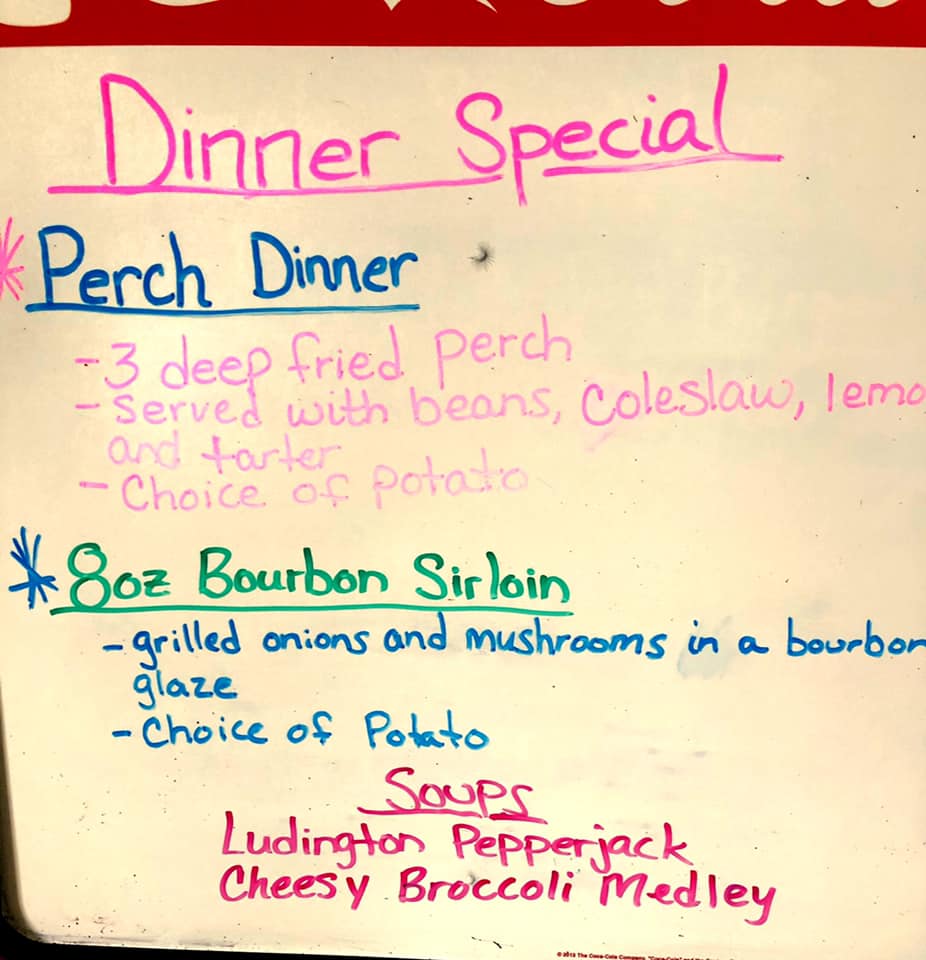 Dinner Special
Perch Dinner
- 3 deep fried perch
- Served with beans, coleslaw, lemo
and tarter
- Choice of potato
8oz Bourbon Sirloin
- grilled onions and mushrooms in a bourbon
glaze
- Choice of Potato
Soups
Ludington Pepperjack
Cheesy Broccoli Medley